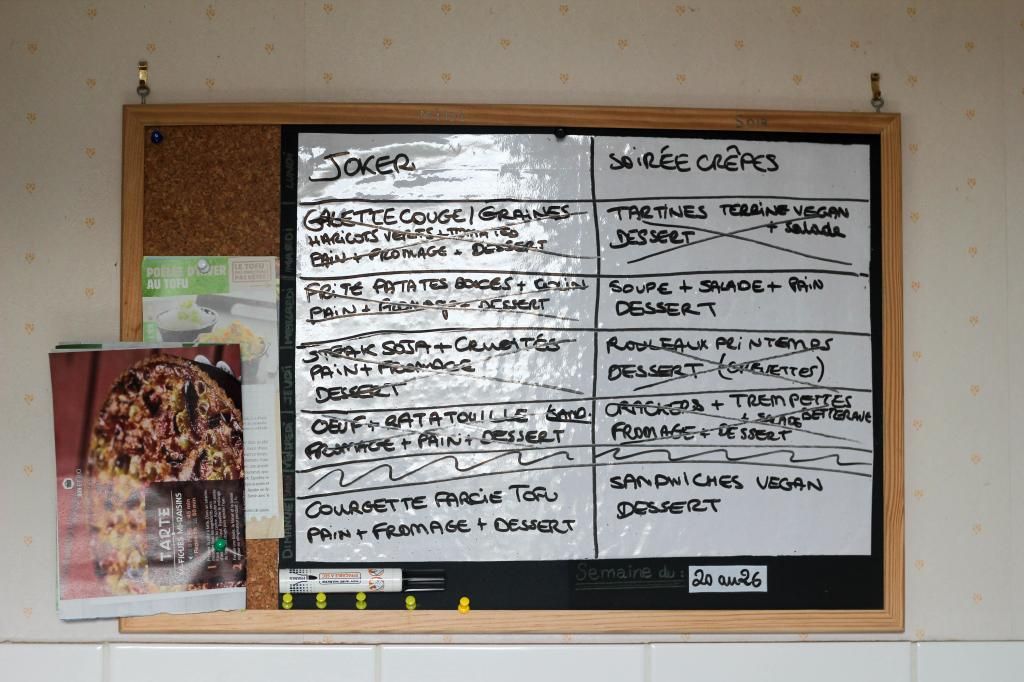 MIDI
SOIR
LUNDI
JOKER
SOIRÉE CRÊPES
MARDI
GALETTE COUGE / GRAINES
HARICOTS VERTS + TOMATES
PAIN + FROMAGE + DESSERT
TARTINES TERRINE VEGAN
+ Salade
DESSERT
MERCREDI
FRITE PATATES DOUCES + COLIN
PAIN + FROMAGE DESSERT
SOUPE + SALADE + PAIN
DESSERT
JEUDI
STEAK SOJA + CRUDITÉS
PAIN + FROMAGE
DESSERT
ROULEAUX PRINTEMPS
DESSERT (CREVETTES)
OEUF + RATATOUILLE SAND.
FROMAGE + PAIN + DESSERT
CRACKERS + TREMPETTES
+ SALADE BETTERAVE
FROMAGE + DESSERT
DIMANCHE
COURGETTE FARCIE TOFU
PAIN + FROMAGE + DESSERT
SANDWICHES VEGAN
DESSERT
Semaine du : 20 au 26
POÊLÉE D'HIVER
AU TOFU
LE TOFU
TARTE
FIGUES MI-RAISINS